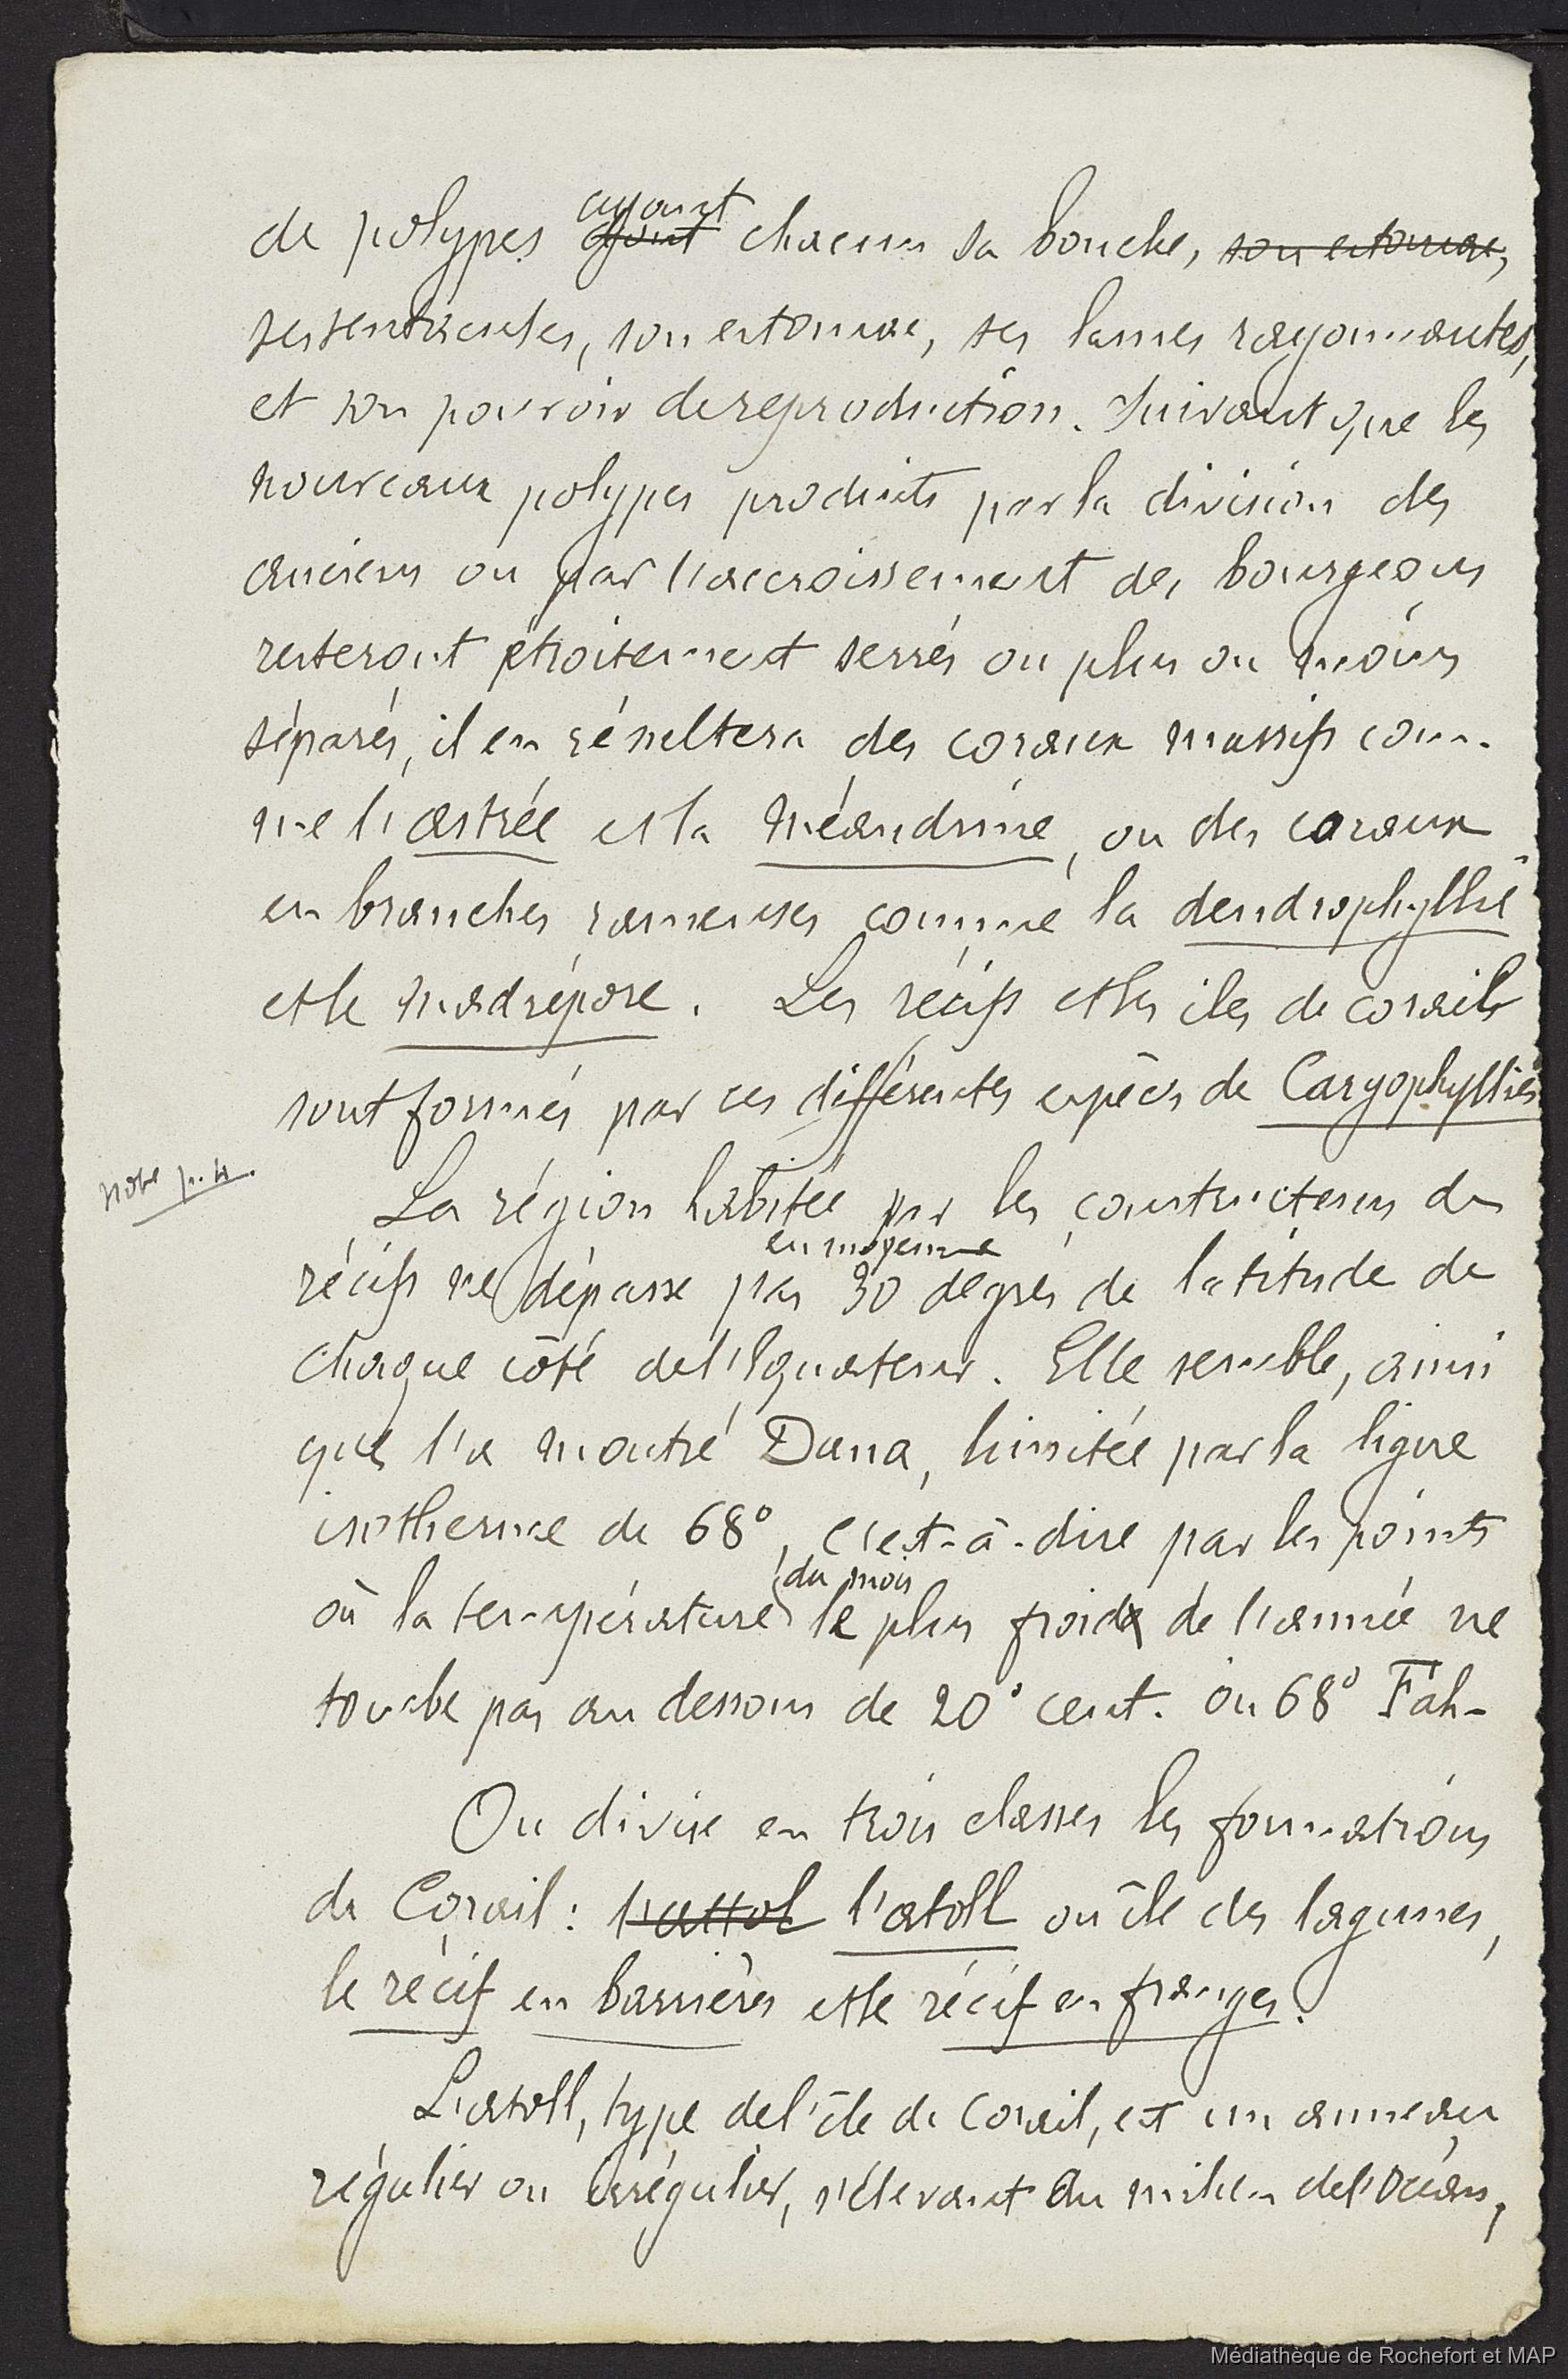 de polypes ayant chacun sa bouche, son estomac,
ses tentacules, son estomac, ses lames rayonnantes,
et son pouvoir de reproduction. Suivant que les
nouveaux polypes produits par la division des
anciens ou par l'accroissement des bourgeons
resteront étroitement serrés ou plus ou moins
séparés, il en résultera des coraux massifs com-
me l'astrée et la méandrine, ou des coraux
en branches rameuses comme la dendrophyllie
et le madrépore. Les récifs et les iles de corail
sont formés par ces différentes espèces de Caryophyllies
Note p. 4.
La région habitée par les constructeurs de
récifs ne dépasse pas en moyenne 30 degrés de latitude de
chaque côté de l'Equateur. Elle semble, ainsi
que l'a montré Dana, limitée par la ligne
isotherme de 68°, c'est-à-dire par les points
où la température du mois le plus froid de l'année ne
tombe pas au dessous de 20° cent. ou 68° Fah-
On divise en trois classes les formations
de Corail : l'attol l'atoll ou île des lagunes,
le récif en barrières et le récif en franges.
L'atoll, type de l'île de Corail, est un anneau
régulier ou irrégulier, s'élevant au milieu de l'Océan,
Médiathèque de Rochefort et MAP